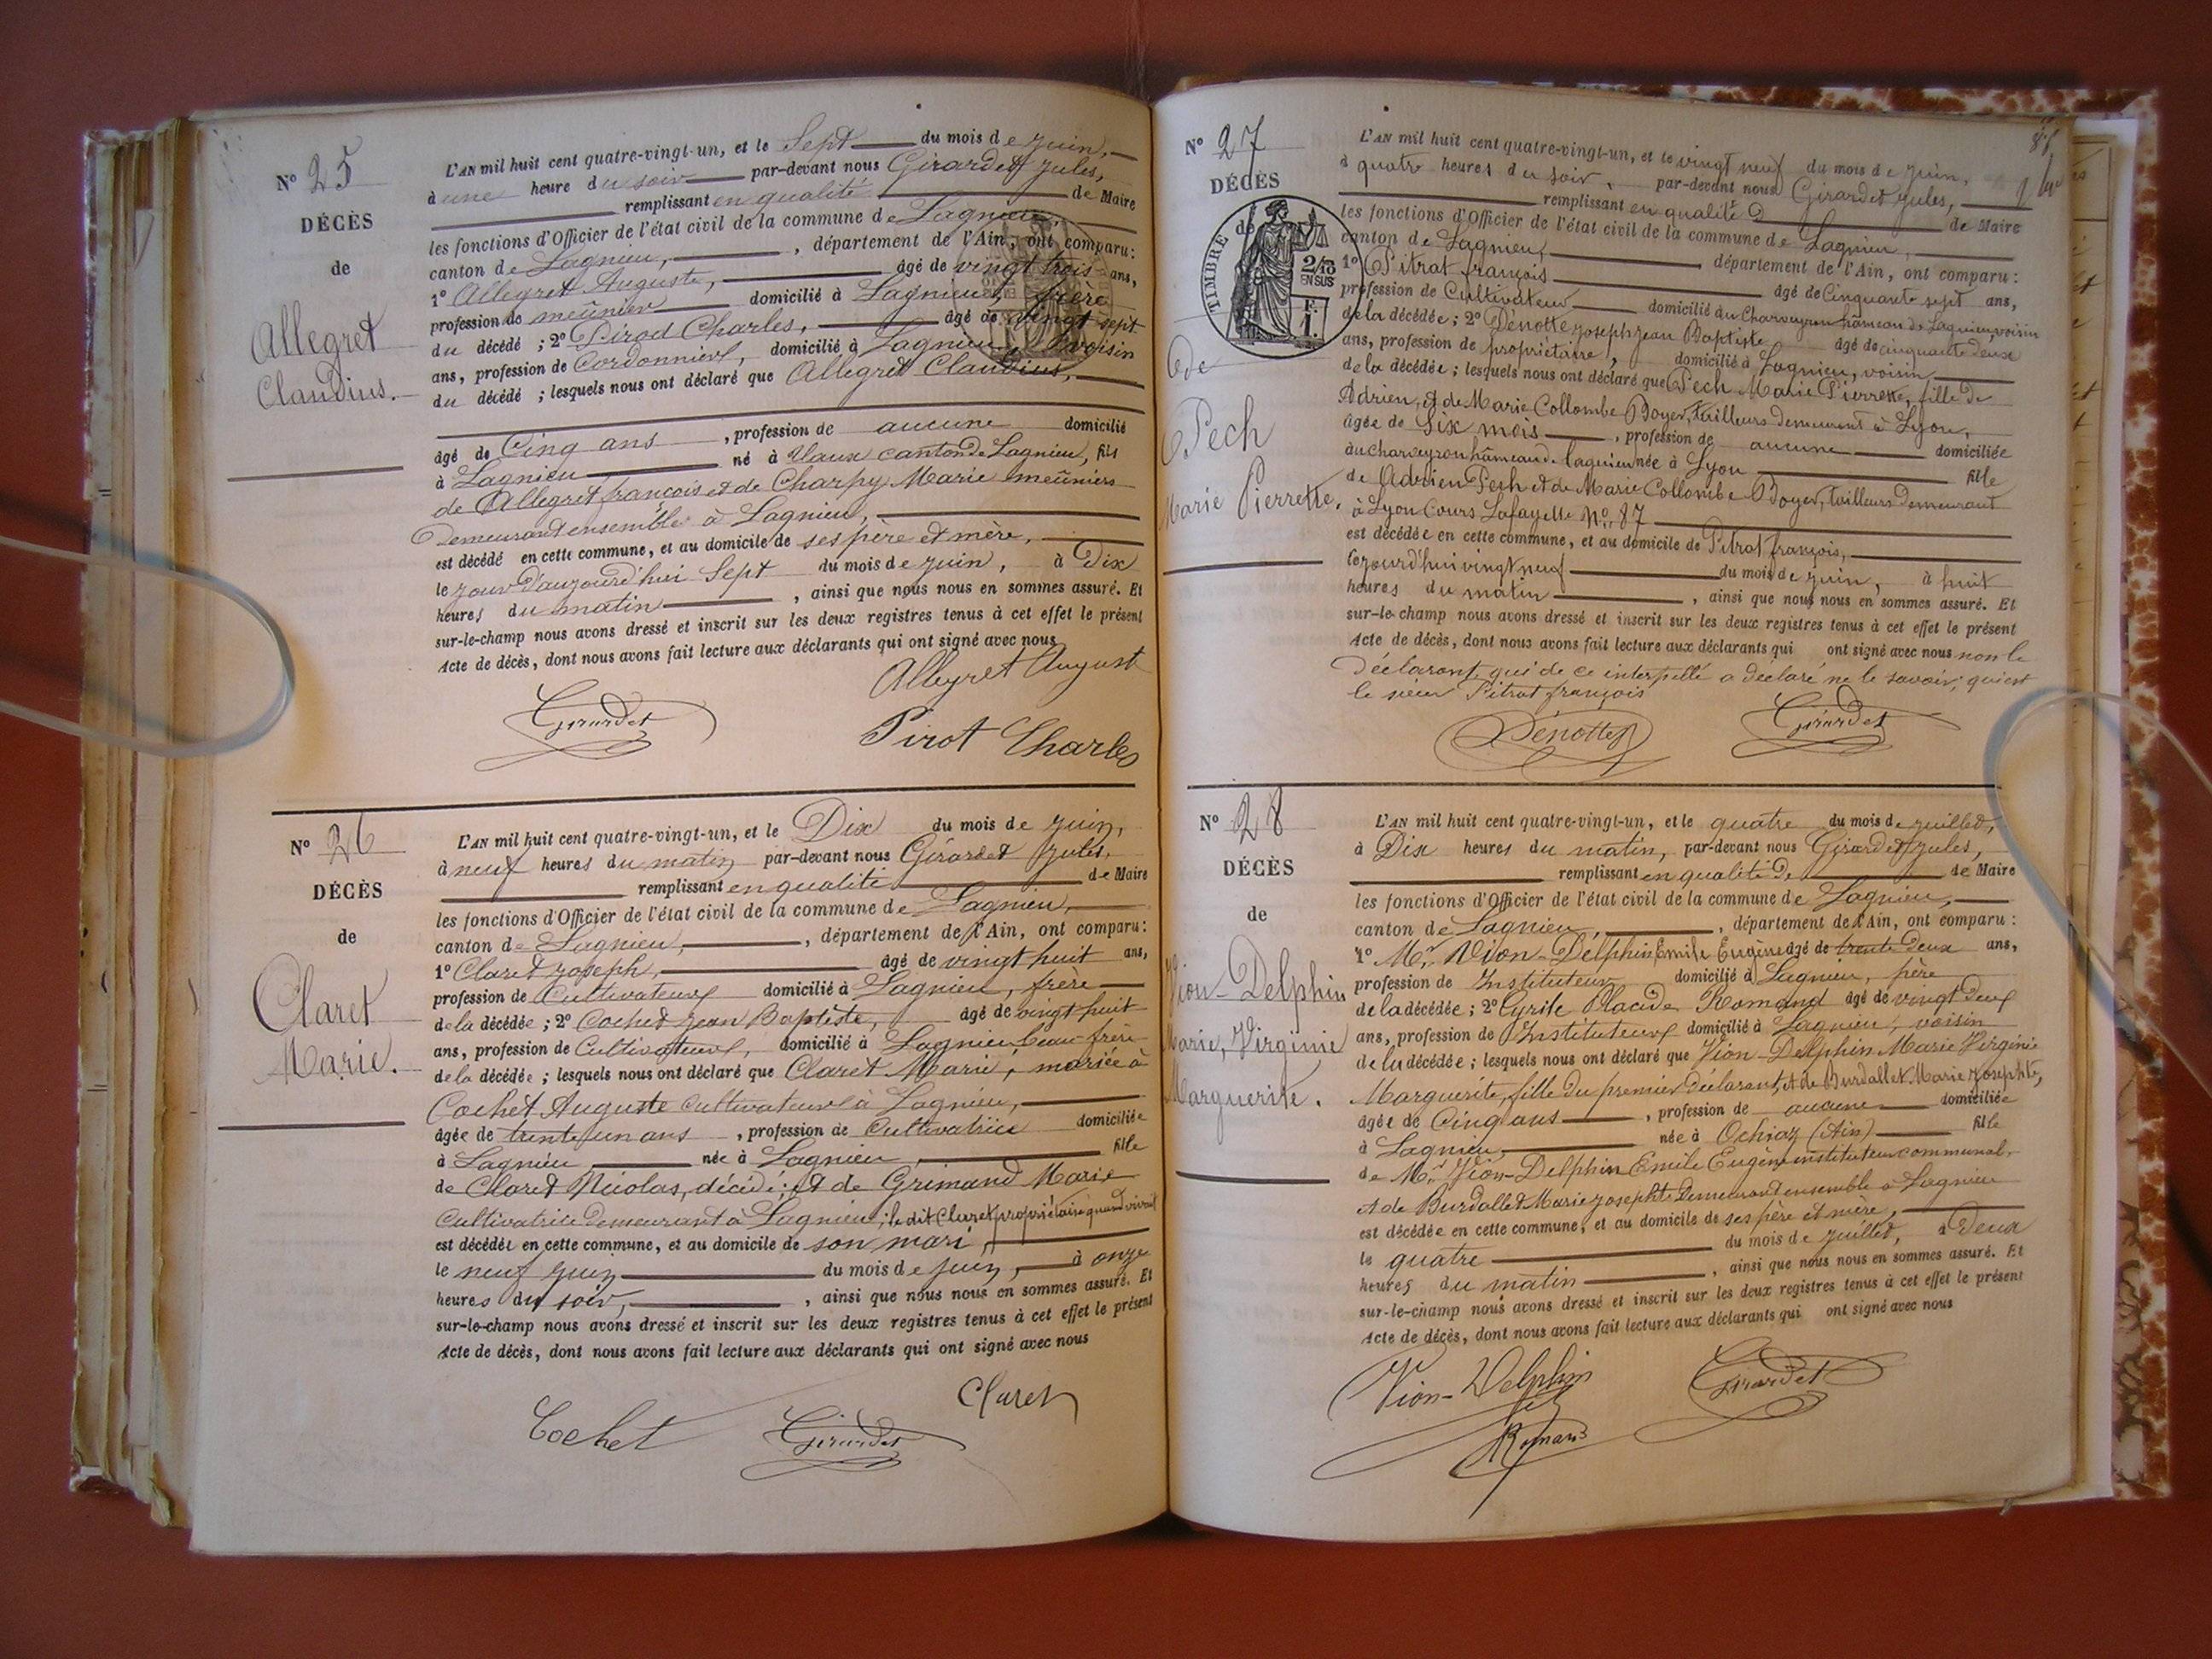 N° 25
DÉCÈS
de
Allegret
Claudius.
L'AN mil huit cent quatre-vingt-un, et le Sept du mois de juin,
à une heure du soir par-devant nous Girardet Jules,
remplissant en qualité de Maire
les fonctions d'Officier de l'état civil de la commune de Lagnieu,
canton de Lagnieu, , département de l'Ain, ont comparu:
1° Allegret Auguste, âgé de vingt trois ans,
profession de meûnier domicilié à Lagnieu, frère
du décédé ; 2° Pirod Charles, âgé de vingt sept
ans, profession de Cordonnier, domicilié à Lagnieu, voisin
du décédé ; lesquels nous ont déclaré que Allegret Claudius,
âgé de Cinq ans , profession de aucune domicilié
à Lagnieu né à Vaux canton de Lagnieu, fils
de Allegret françois et de Charpy Marie meûniers
Demeurant ensemble à Lagnieu,
est décédé en cette commune, et au domicile de ses père et mère,
le jour d'aujourd'hui Sept du mois de juin, à Dix
heures du matin , ainsi que nous nous en sommes assuré. Et
sur-le-champ nous avons dressé et inscrit sur les deux registres tenus à cet effet le présent
Acte de décès, dont nous avons fait lecture aux déclarants qui ont signé avec nous
Allegret August
Girardet
Pirot Charles
N° 26
DÉCÈS
de
Claret
Marie.
L'AN mil huit cent quatre-vingt-un, et le Dix du mois de juin,
à neuf heures du matin par-devant nous Girardet Jules,
remplissant en qualité de Maire
les fonctions d'Officier de l'état civil de la commune de Lagnieu,
canton de Lagnieu, , département de l'Ain, ont comparu:
1° Claret Joseph, âgé de vingt huit ans,
profession de Cultivateur domicilié à Lagnieu, frère
de la décédée ; 2° Cochet Jean Baptiste, âgé de vingt huit
ans, profession de Cultivateur, domicilié à Lagnieu beau frère
de la décédée ; lesquels nous ont déclaré que Claret Marie, mariée à
Cochet Auguste Cultivateur à Lagnieu,
âgée de trente un ans , profession de Cultivatrice domiciliée
à Lagnieu née à Lagnieu, fille
de Claret Nicolas, décédé; et de Grimand Marie
Cultivatrice Demeurant à Lagnieu; le dit Claret propriétaire quand vivait
est décédée en cette commune, et au domicile de son mari,
le neuf juin du mois de juin, à onze
heures du soir, , ainsi que nous nous en sommes assuré. Et
sur-le-champ nous avons dressé et inscrit sur les deux registres tenus à cet effet le présent
Acte de décès, dont nous avons fait lecture aux déclarants qui ont signé avec nous
Claret
Cochet Girardet
N° 27
DÉCÈS
de
TIMBRE
2/10
EN SUS
1 F.
de
Pech
Marie Pierrette.
L'AN mil huit cent quatre-vingt-un, et le vingt neuf du mois de juin,
à quatre heures du soir, par-devant nous Girardet Jules,
remplissant en qualité d de Maire
les fonctions d'Officier de l'état civil de la commune de Lagnieu,
canton de Lagnieu, département de l'Ain, ont comparu:
1° Pitrat françois âgé de Cinquante sept ans,
profession de Cultivateur domicilié au Charveyron hâmeau de Lagnieu, voisin
de la décédée ; 2° Dénotte joseph jean Baptiste âgé de cinquante deux
ans, profession de propriétaire, domicilié à Lagnieu, voisin
de la décédée ; lesquels nous ont déclaré que Pech Marie Pierrette, fille de
Adrien, et de Marie Collombe Boyer, tailleurs demeurant à Lyon,
âgée de Six mois , profession de aucune domiciliée
au charveyron hâmeau de lagnieu née à Lyon fille
de Adrien Pech et de Marie Collombe Boyer, tailleurs Demeurant
à Lyon Cours Lafayette N° 87
est décédée en cette commune, et au domicile de Pitrat françois,
cejourd'hui vingt neuf du mois de juin, à huit
heures du matin , ainsi que nous nous en sommes assuré. Et
sur-le-champ nous avons dressé et inscrit sur les deux registres tenus à cet effet le présent
Acte de décès, dont nous avons fait lecture aux déclarants qui ont signé avec nous non le
Déclarant, qui de ce interpellé a déclaré ne le savoir, qui est
le sieur Pitrat françois
Dénotte Girardet
N° 28
DÉCÈS
de
Vion-Delphin
Marie, Virginie
Marguerite.
L'AN mil huit cent quatre-vingt-un, et le quatre du mois de juillet,
à Dix heures du matin, par-devant nous Girardet Jules,
remplissant en qualité de de Maire
les fonctions d'Officier de l'état civil de la commune de Lagnieu,
canton de Lagnieu, , département de l'Ain, ont comparu:
1° Mr Vion-Delphin Emile Eugène âgé de trente deux ans,
profession de Instituteur domicilié à Lagnieu, père
de la décédée ; 2° Cyrile Placide Romand âgé de vingt deux
ans, profession de Instituteur domicilié à Lagnieu, voisin
de la décédée ; lesquels nous ont déclaré que Vion-Delphin Marie Virginie
Marguerite, fille du premier déclarant, et de Burdallet Marie Josephte,
âgée de Cinq ans , profession de aucune domiciliée
à Lagnieu née à Ochiaz (Ain) fille
de Mr Vion-Delphin Emile Eugène instituteur communal,
et de Burdallet Marie josephte Demeurant ensemble à Lagnieu
est décédée en cette commune, et au domicile de ses père et mère,
le quatre du mois de juillet, à Deux
heures du matin , ainsi que nous nous en sommes assuré. Et
sur-le-champ nous avons dressé et inscrit sur les deux registres tenus à cet effet le présent
Acte de décès, dont nous avons fait lecture aux déclarants qui ont signé avec nous
Vion-Delphin Girardet
Romand